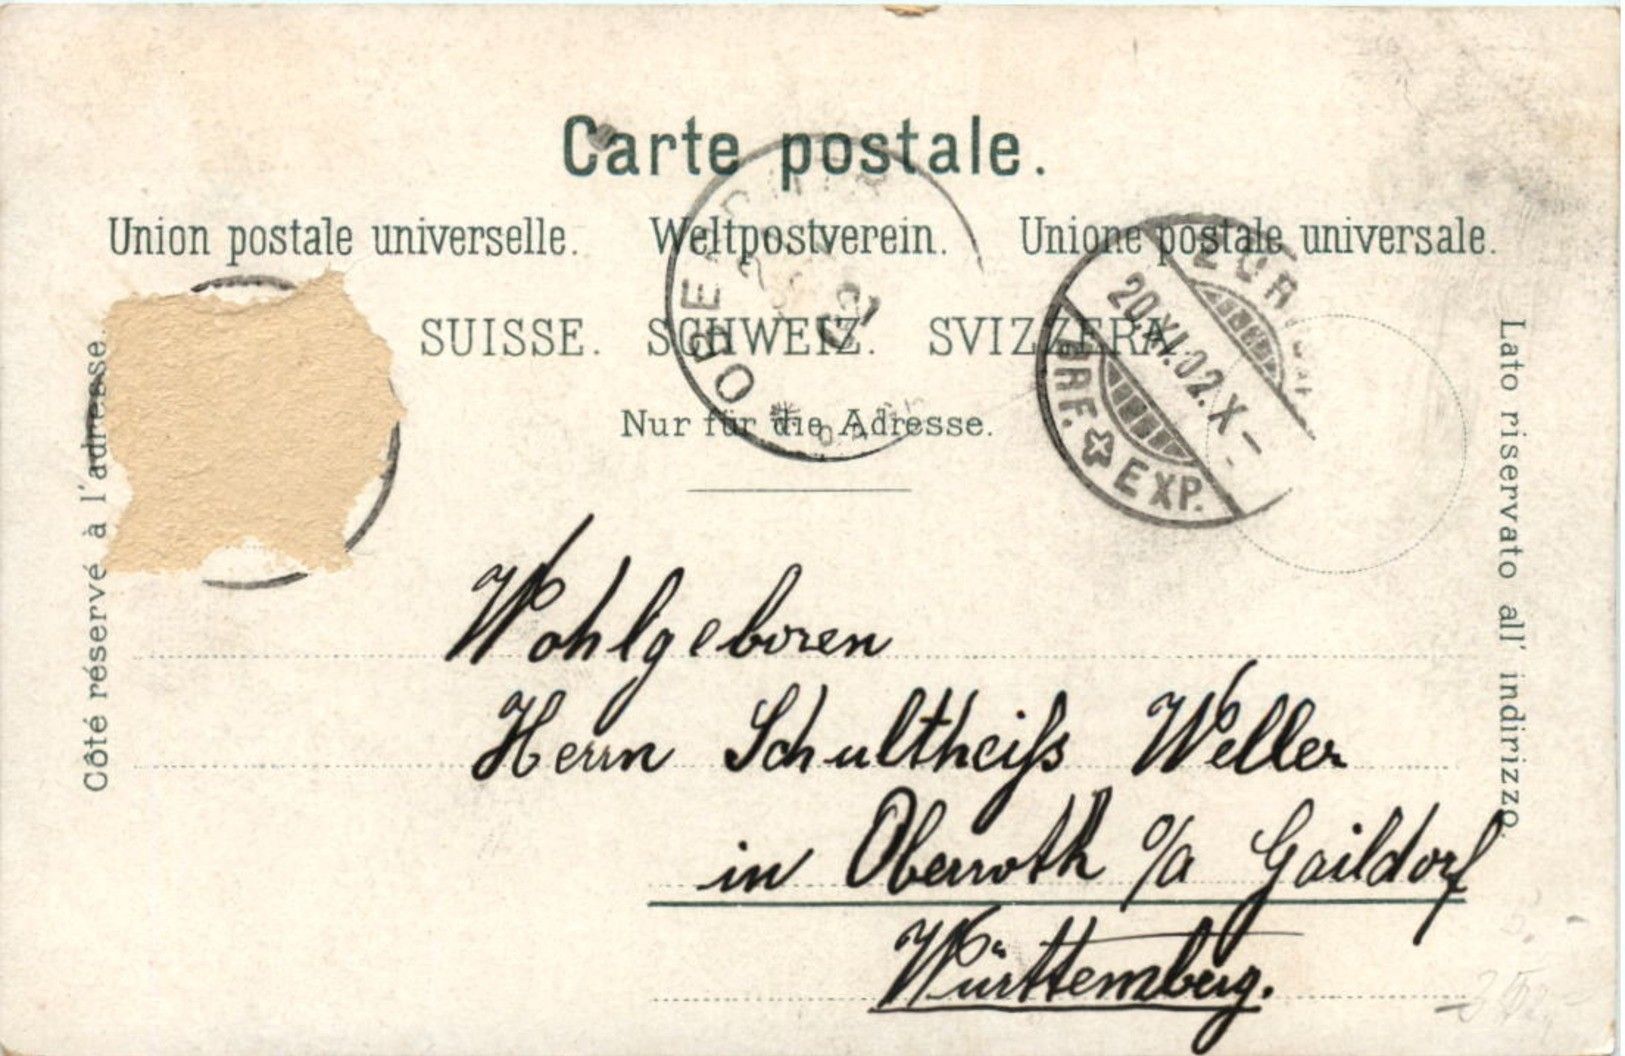 Carte postale.
Union postale universelle. Weltpostverein. Unione postale universale.
SUISSE. SCHWEIZ. SVIZZERA.
Nur für die Adresse.
Côté réservé à l'adresse.
Lato riservato all' indirizzo.
20.XI.02.X–
BRF. EXP.
Wohlgeboren
Herrn Schultheiß Weller
in Oberroth o/a Gaildorf
Württemberg.